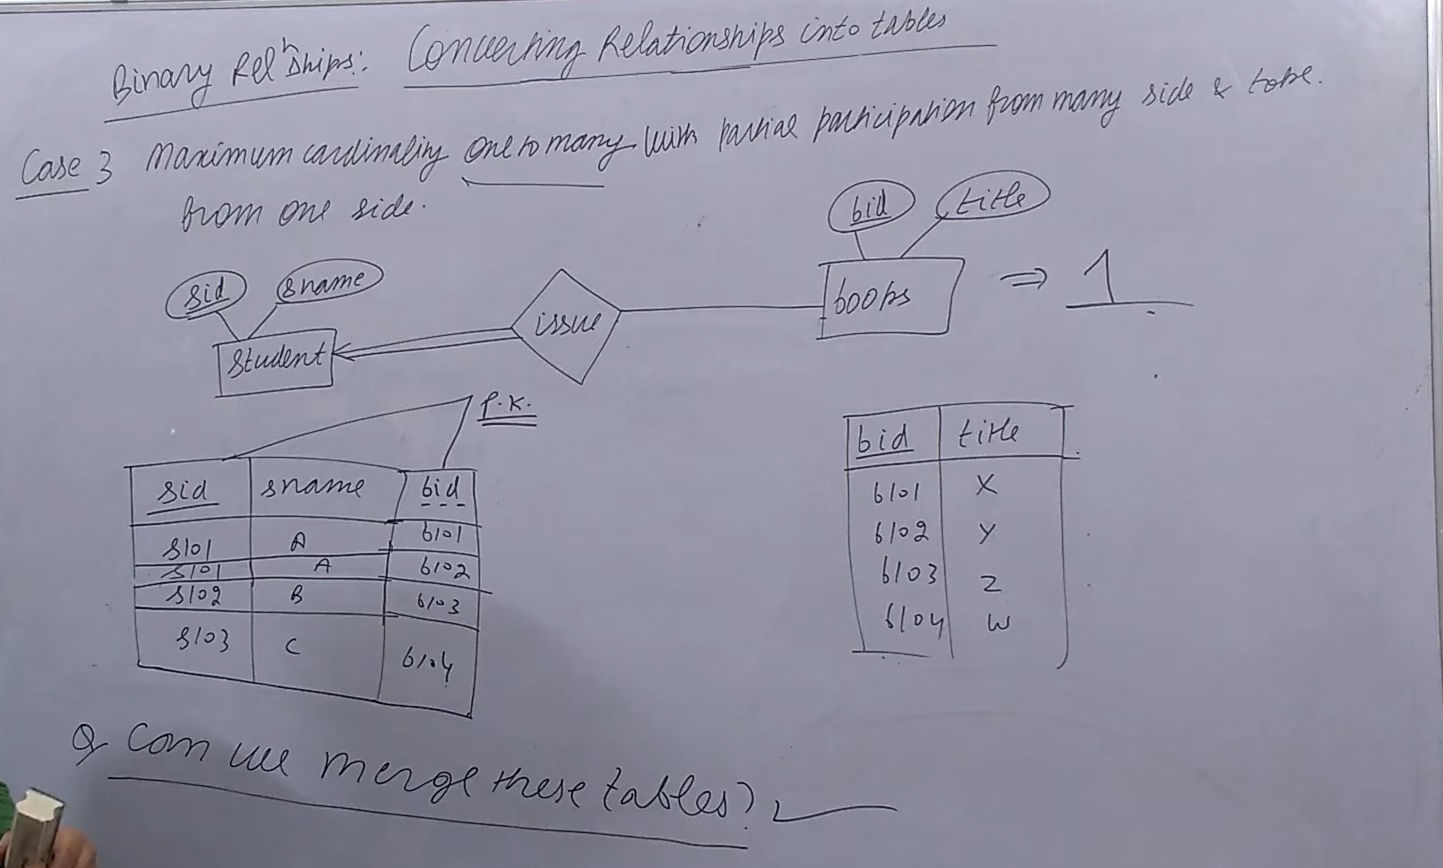 Binary Relships: Converting Relationships into tables
Case 3 Maximum cardinality one to many with partial participation from many side & total
from one side.
bid title
sid sname
books ⇒ 1
issue
student
P.K.
bid title
sid sname bid
b101 X
s101 A b101
b102 Y
s101 A b102
s102 B b103
b103 Z
b104 W
s103 C b104
Q Can we merge these tables?